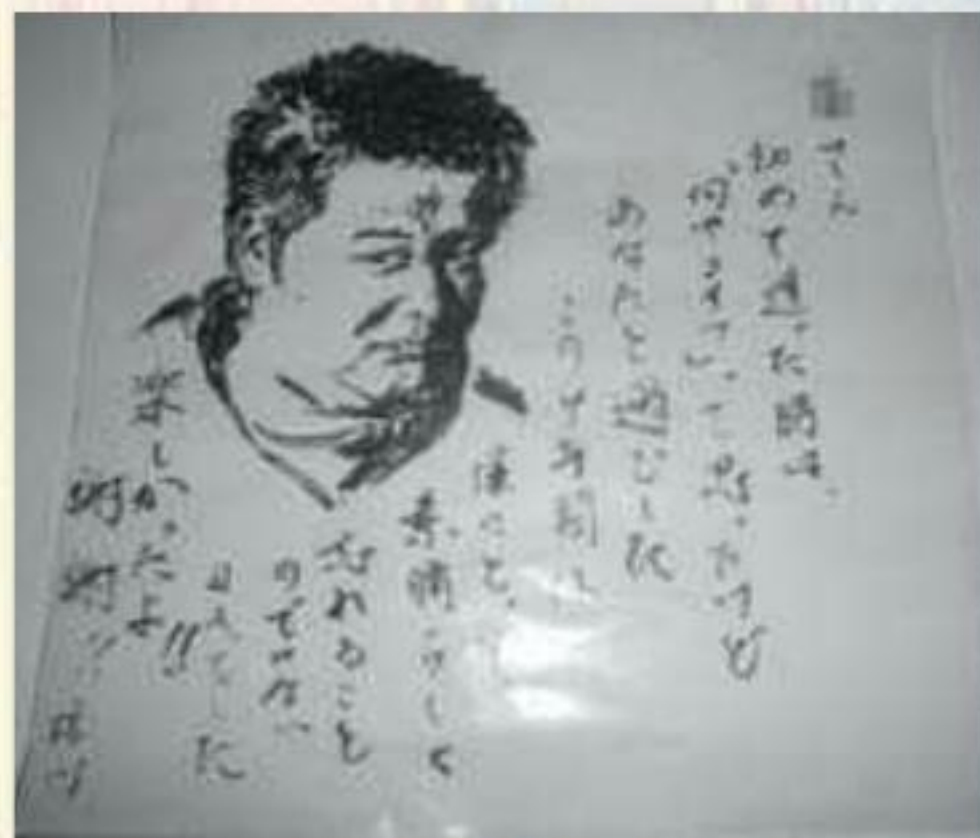 さん
初めて逢った時は、
何やコイツって思ったけど
あなたと過ごした
この1ヶ月間は
僕にと、
素晴らしく
忘れること
のできない
日々でした
楽しかったよ!!